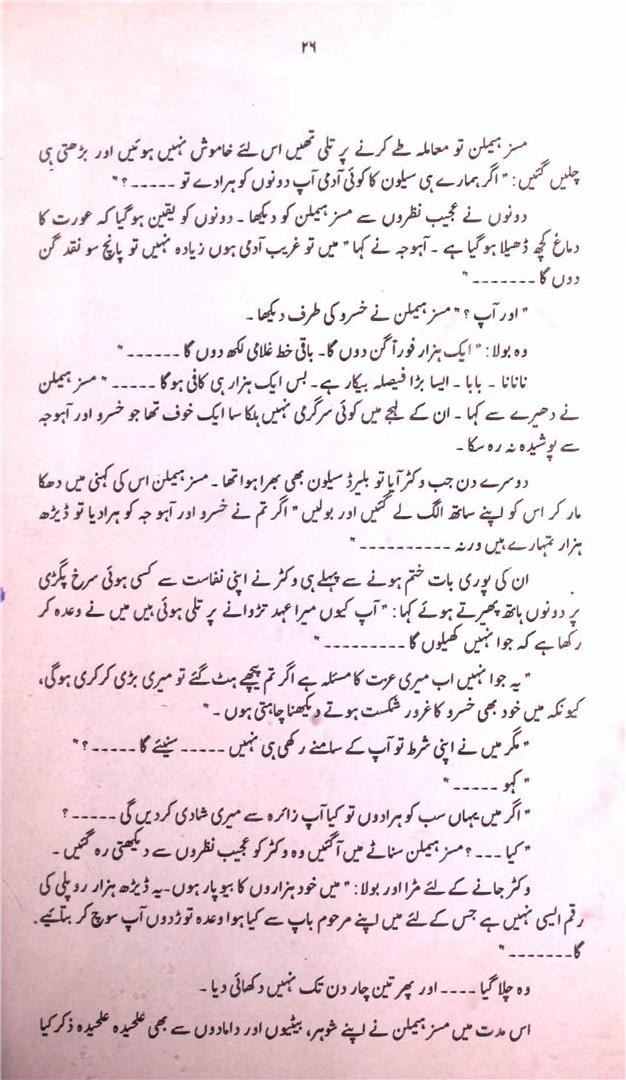 ۲۶
مسز ہیملن تو معاملہ طے کرنے پر تلی تھیں اس لئے خاموش نہیں ہوئیں اور بڑھتی ہی
چلیں گئیں: " اگر ہمارے ہی سیلون کا کوئی آدمی آپ دونوں کو ہرا دے تو ----- ؟ "
دونوں نے عجیب نظروں سے مسز ہیملن کو دیکھا ۔ دونوں کو یقین ہو گیا کہ عورت کا
دماغ کچھ ڈھیلا ہو گیا ہے ۔ آہوجہ نے کہا " میں تو غریب آدمی ہوں زیادہ نہیں تو پانچ سو نقد گن
دوں گا ------- "
" اور آپ ؟ " مسز ہیملن نے خسرو کی طرف دیکھا ۔
وہ بولا: " ایک ہزار فوراً گن دوں گا۔ باقی خط غلامی لکھ دوں گا ------ "
نانانا ۔ بابا ۔ ایسا بڑا فیصلہ بیکار ہے۔ بس ایک ہزار ہی کافی ہوگا ----- " مسز ہیملن
نے دھیرے سے کہا ۔ ان کے لہجے میں کوئی سرگرمی نہیں ہلکا سا ایک خوف تھا جو خسرو اور آہوجہ
سے پوشیدہ نہ رہ سکا ۔
دوسرے دن جب وکٹر آیا تو بلیرڈ سیلون بھی بھرا ہوا تھا ۔ مسز ہیملن اس کی کہنی میں دھکا
مار کر اس کو اپنے ساتھ الگ لے گئیں اور بولیں " اگر تم نے خسرو اور آہو جہ کو ہرا دیا تو ڈیڑھ
ہزار تمہارے ہیں ورنہ ---------- "
ان کی پوری بات ختم ہونے سے پہلے ہی وکٹر نے اپنی نفاست سے کسی ہوئی سرخ پگڑی
پر دونوں ہاتھ پھیرتے ہوئے کہا: " آپ کیوں میرا عہد تڑوانے پر تلی ہوئی ہیں میں نے وعدہ کر
رکھا ہے کہ جوا نہیں کھیلوں گا --------- "
" یہ جوا نہیں اب میری عزت کا مسئلہ ہے اگر تم پیچھے ہٹ گئے تو میری بڑی کرکری ہوگی،
کیونکہ میں خود بھی خسرو کا غرور شکست ہوتے دیکھنا چاہتی ہوں ۔ "
" مگر میں نے اپنی شرط تو آپ کے سامنے رکھی ہی نہیں ----- سنیئے گا ----- ؟ "
" کہو ----- "
" اگر میں یہاں سب کو ہرا دوں تو کیا آپ زائرہ سے میری شادی کر دیں گی ----- ؟
" کیا --- ؟ مسز ہیملن سناٹے میں آ گئیں وہ وکٹر کو عجیب نظروں سے دیکھتی رہ گئیں ۔
وکٹر جانے کے لئے مڑا اور بولا: " میں خود ہزاروں کا بیوپار ہوں۔ یہ ڈیڑھ ہزار روپلی کی
رقم ایسی نہیں ہے جس کے لئے میں اپنے مرحوم باپ سے کیا ہوا وعدہ توڑ دوں آپ سوچ کر بتائیے
گا ------- "
وہ چلا گیا ---- اور پھر تین چار دن تک نہیں دکھائی دیا ۔
اس مدت میں مسز ہیملن نے اپنے شوہر، بیٹیوں اور دامادوں سے بھی علحیدہ علحیدہ ذکر کیا